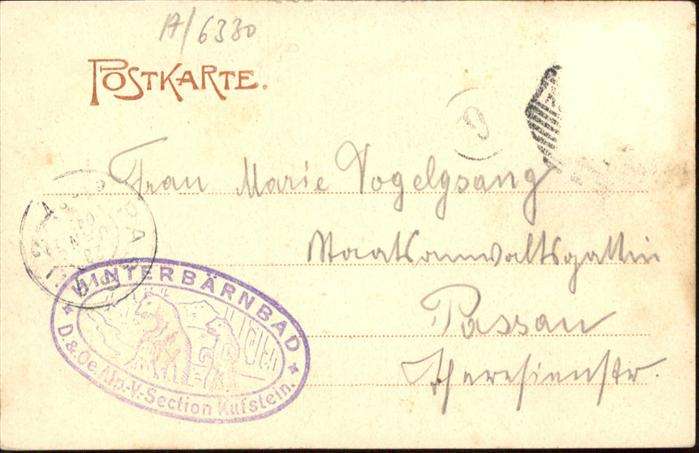 A/6330
POSTKARTE.
Frau Marie Vogelgsang
Staatsanwaltsgattin
Passau
Theresienstr.
HINTERBÄRNBAD
D. & Oe. Alp.-V.-Section Kufstein.